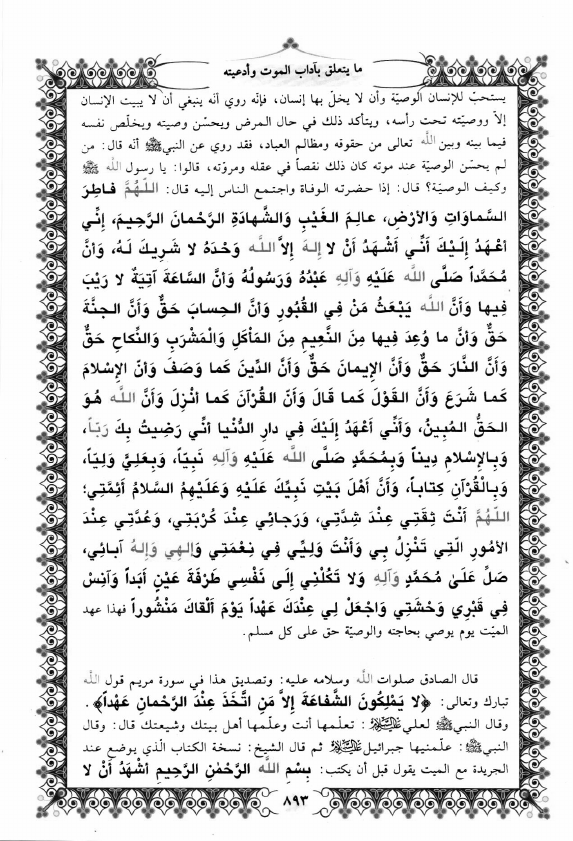 ما يتعلق بآداب الموت وأدعيته
يستحبّ للإنسان الوصيّة وأن لا يخلّ بها إنسان، فإنّه روي أنّه ينبغي أن لا يبيت الإنسان
إلاّ ووصيّته تحت رأسه، ويتأكد ذلك في حال المرض ويحسّن وصيته ويخلّص نفسه
فيما بينه وبين الله تعالى من حقوقه ومظالم العباد، فقد روي عن النبي ﷺ أنّه قال: من
لم يحسّن الوصيّة عند موته كان ذلك نقصاً في عقله ومروّته، قالوا: يا رسول الله ﷺ
وكيف الوصيّة؟ قال: إذا حضرته الوفاة واجتمع الناس إليه قال: اللّهُمَّ فاطِرَ
السَّماواتِ وَالأرْضِ، عالِمَ الغَيْبِ وَالشَّهادَةِ الرَّحْمانَ الرَّحِيمَ، إنِّي
أعْهَدُ إلَيْكَ أنِّي أشْهَدُ أنْ لا إلهَ إلاَّ الله وَحْدَهُ لا شَرِيكَ لَهُ، وَأنَّ
مُحَمَّداً صَلَّى الله عَلَيْهِ وَآلِهِ عَبْدُهُ وَرَسُولُهُ وَأنَّ السَّاعَةَ آتِيَةٌ لا رَيْبَ
فِيها وَأنَّ الله يَبْعَثُ مَنْ فِي القُبُورِ وَأنَّ الحِسابَ حَقٌّ وَأنَّ الجنَّةَ
حَقٌّ وَأنَّ ما وُعِدَ فِيها مِنَ النَّعِيمِ مِنَ المَأكَلِ وَالْمَشْرَبِ وَالنِّكاحِ حَقٌّ
وَأنَّ النَّارَ حَقٌّ وَأنَّ الإيمانَ حَقٌّ وَأنَّ الدِّينَ كَما وَصَفَ وَأنّ الإسْلامَ
كَما شَرَعَ وَأنَّ القَوْلَ كَما قالَ وَأنّ القُرْآنَ كَما أنْزِلَ وَأنَّ الله هُوَ
الحَقُّ المُبِينُ، وَأنِّي أعْهَدُ إلَيْكَ فِي دارِ الدُّنْيا أنِّي رَضِيتُ بِكَ رَبّاً،
وَبِالإسْلامِ دِيناً وَبِمُحَمَّدٍ صَلَّى الله عَلَيْهِ وَآلِهِ نَبِيّاً، وَبِعَلِيٍّ وَلِيّاً،
وَبِالْقُرْآنِ كِتاباً، وَأنَّ أهْلَ بَيْتِ نَبِيِّكَ عَلَيْهِ وَعَلَيْهِمُ السَّلامُ أئِمَّتِي؛
اللّهُمَّ أنْتَ ثِقَتِي عِنْدَ شِدَّتِي، وَرَجائِي عِنْدَ كُرْبَتِي، وَعُدَّتِي عِنْدَ
الأمُورِ الّتِي تَنْزِلُ بِي وَأنْتَ وَلِيِّي فِي نِعْمَتِي وَإلهِي وَإلهُ آبائِي،
صَلِّ عَلَىٰ مُحَمَّدٍ وَآلِهِ وَلا تَكِلْنِي إلَى نَفْسِي طَرْفَةَ عَيْنٍ أبَداً وَآنِسْ
فِي قَبْرِي وَحْشَتِي وَاجْعَلْ لِي عِنْدَكَ عَهْداً يَوْمَ ألْقاكَ مَنْشُوراً فهذا عهد
الميّت يوم يوصي بحاجته والوصيّة حق على كل مسلم.
قال الصادق صلوات الله وسلامه عليه: وتصديق هذا في سورة مريم قول الله
تبارك وتعالى: ﴿لا يَمْلِكُونَ الشَّفاعَةَ إلاَّ مَنِ اتَّخَذَ عِنْدَ الرَّحْمانِ عَهْداً﴾.
وقال النبي ﷺ لعلي عليه السلام: تعلّمها أنت وعلّمها أهل بيتك وشيعتك قال: وقال
النبي ﷺ: علّمنيها جبرائيل عليه السلام ثم قال الشيخ: نسخة الكتاب الّذي يوضع عند
الجريدة مع الميت يقول قبل أن يكتب: بِسْمِ الله الرَّحْمٰنِ الرَّحِيمِ أشْهَدُ أنْ لا
٨٩٣